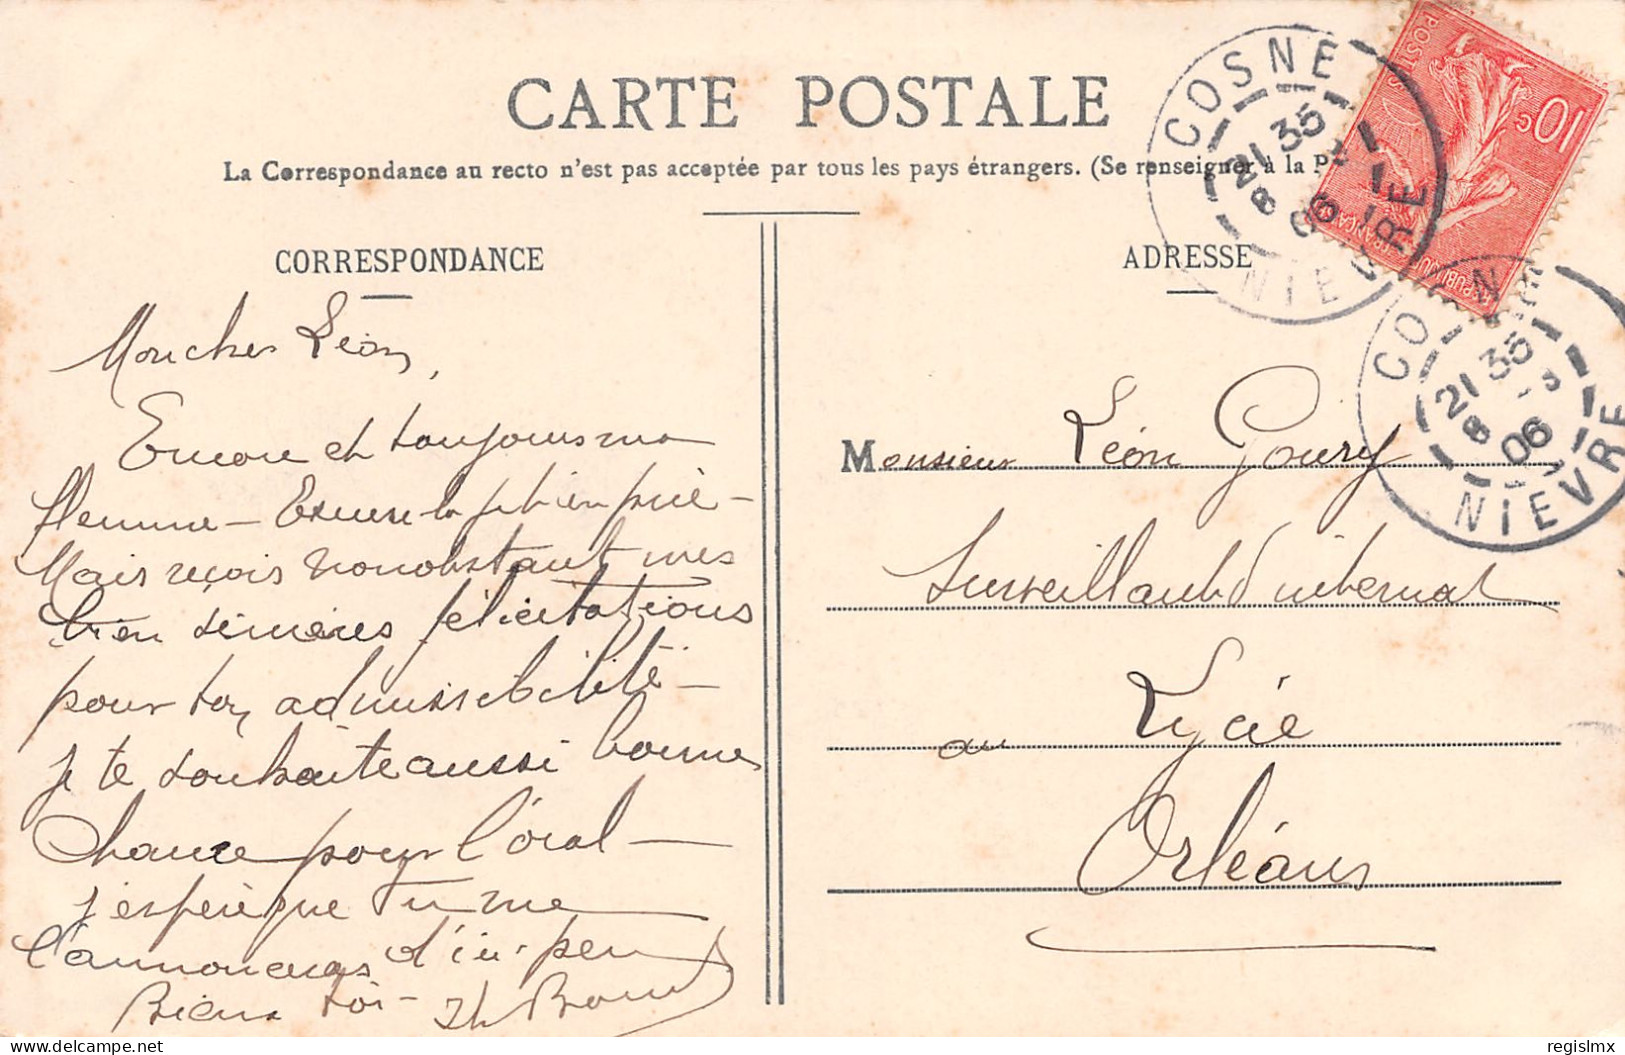 CARTE POSTALE
La Correspondance au recto n'est pas acceptée par tous les pays étrangers. (Se renseigner à la P
CORRESPONDANCE
Mon cher Léon,
Encore et toujours ma
flemme – Excuse-la je t'en prie –
Mais reçois nonobstant mes
bien sincères félicitations
pour ton admissibilité –
Je te souhaite aussi bonne
chance pour l'oral –
J'espère que tu me
l'annonceras d'ici peu
Bien à toi –
ADRESSE
Monsieur Léon Goury
Surveillant d'internat
au Lycée
Orléans
COSNE
21 35
8 -3
06
NIEVRE
COSNE
21 35
8 -3
06
NIEVRE
10c
POSTES
REPUBLIQUE FRANÇAISE
delcampe.net
regislmx